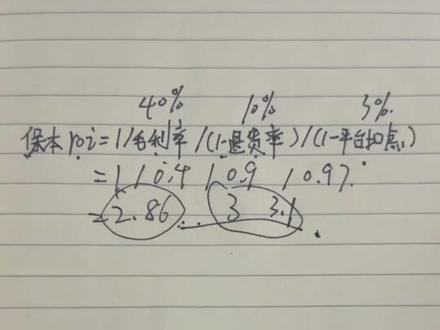 40% 10% 3%.
保本roi=1/毛利率/(1-退货率)/(1-平台扣点)
=1/0.4/0.9/0.97.
=2.86 3 3.1